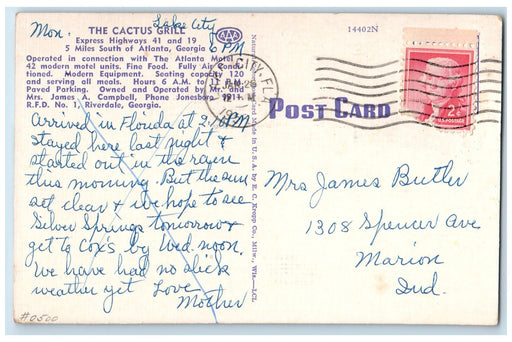 Mon.
Lake City
6 PM
THE CACTUS GRILL
Express Highways 41 and 19
5 Miles South of Atlanta, Georgia
AAA
Operated in connection with The Atlanta
42 modern motel units. Fine Food. Fully Air
tioned. Modern Equipment. Seating capacity 120
and serving all meals. Hours 6 A.M. to 11 P.M.
Paved Parking. Owned and Operated by Mr. and
Mrs. James A. Campbell, Phone Jonesboro
R.F.D. No. 1, Riverdale, Georgia.
Arrived in Florida at 2 PM
stayed here last night &
started out in the
this morning. But the sun
out clear & we hope to see
Silver Springs tomorrow &
get to Cox's by Wed. noon.
We have had no slick
weather yet Love
Mother
#0500
Made in U.S.A. by E. C. Kropp Co., Milw., Wis.—LCL
14402N
POST CARD
2¢
U.S. POSTAGE
Mrs James Butler
1308 Spencer Ave
Marion
Ind.